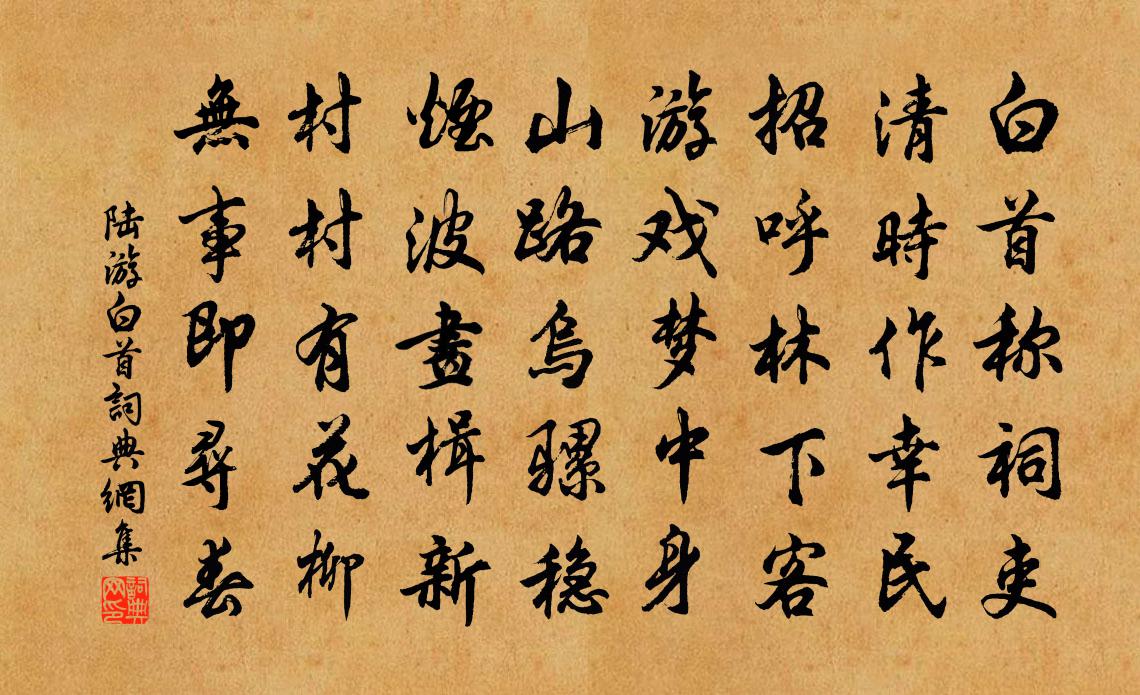 白首称祠吏
清時作幸民
招呼林下客
游戏梦中身
山路烏骡稳
煙波畫楫新
村村有花柳
無事即尋春
陆游白首詞典網集
詞典网印